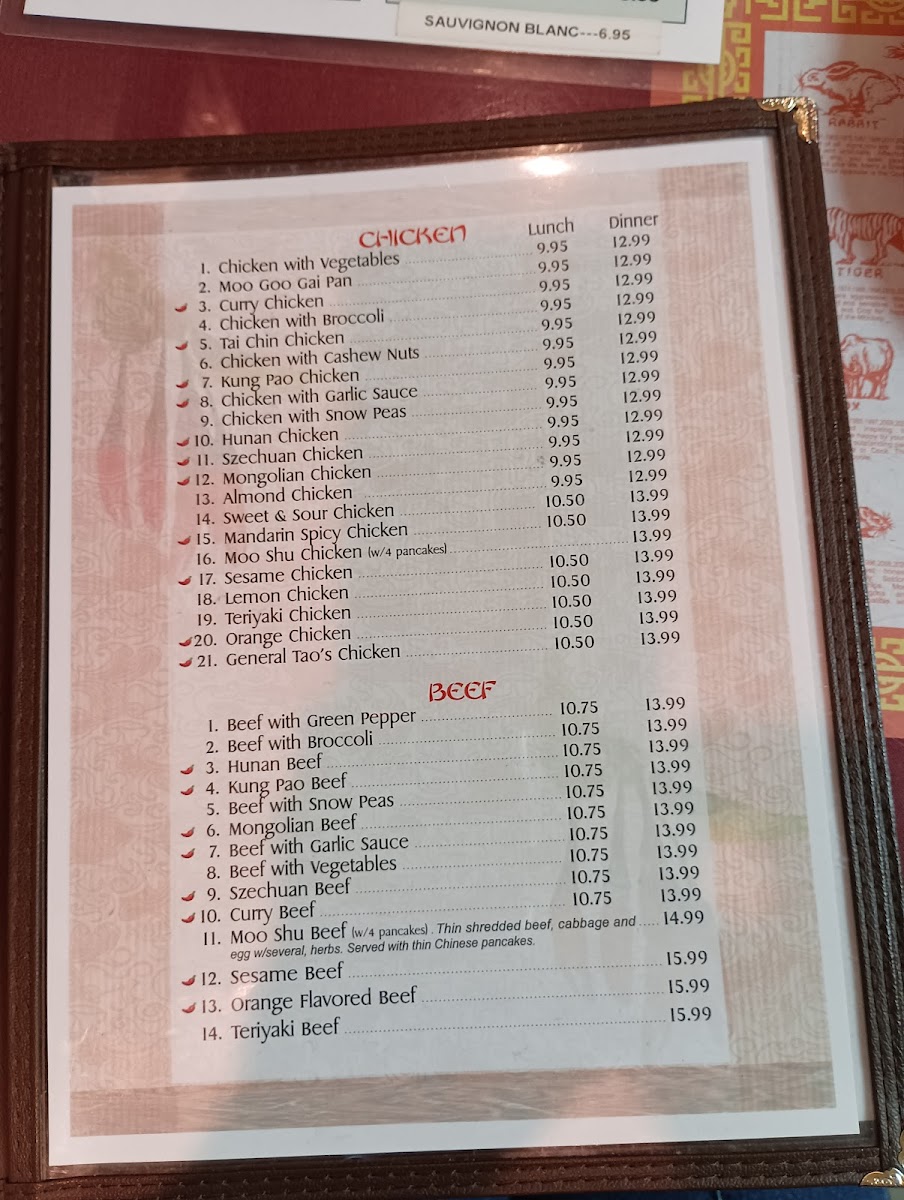 SAUVIGNON BLANC---6.95
RABBIT
TIGER
OX
CHICKEN Lunch Dinner
1. Chicken with Vegetables 9.95 12.99
2. Moo Goo Gai Pan 9.95 12.99
3. Curry Chicken 9.95 12.99
4. Chicken with Broccoli 9.95 12.99
5. Tai Chin Chicken 9.95 12.99
6. Chicken with Cashew Nuts 9.95 12.99
7. Kung Pao Chicken 9.95 12.99
8. Chicken with Garlic Sauce 9.95 12.99
9. Chicken with Snow Peas 9.95 12.99
10. Hunan Chicken 9.95 12.99
11. Szechuan Chicken 9.95 12.99
12. Mongolian Chicken 9.95 12.99
13. Almond Chicken 9.95 12.99
14. Sweet & Sour Chicken 10.50 13.99
15. Mandarin Spicy Chicken 10.50 13.99
16. Moo Shu Chicken (w/4 pancakes) 13.99
17. Sesame Chicken 10.50 13.99
18. Lemon Chicken 10.50 13.99
19. Teriyaki Chicken 10.50 13.99
20. Orange Chicken 10.50 13.99
21. General Tao's Chicken 10.50 13.99
BEEF
1. Beef with Green Pepper 10.75 13.99
2. Beef with Broccoli 10.75 13.99
3. Hunan Beef 10.75 13.99
4. Kung Pao Beef 10.75 13.99
5. Beef with Snow Peas 10.75 13.99
6. Mongolian Beef 10.75 13.99
7. Beef with Garlic Sauce 10.75 13.99
8. Beef with Vegetables 10.75 13.99
9. Szechuan Beef 10.75 13.99
10. Curry Beef 10.75 13.99
11. Moo Shu Beef (w/4 pancakes) . Thin shredded beef, cabbage and ..... 14.99
egg w/several, herbs. Served with thin Chinese pancakes.
12. Sesame Beef 15.99
13. Orange Flavored Beef 15.99
14. Teriyaki Beef 15.99